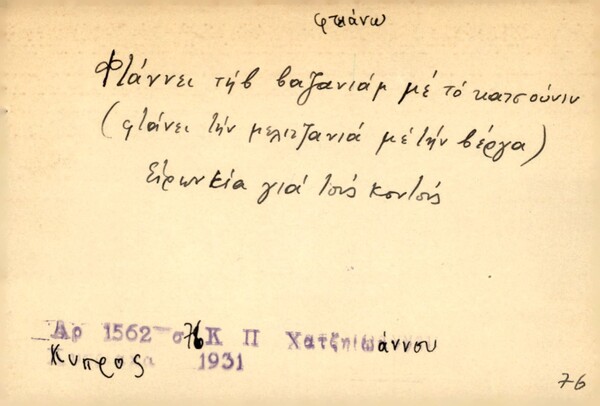 φτιάνω
Φτάννει τήβ βαζανιάμ μέ τό κατσούνιν
(φτάνει τήν μελιτζανιά μέ τήν βέργα)
Εἰρωνεία γιά τούς κοντούς
Αρ 1562 σ 76 Κ Π Χατζηιωάννου
Κύπρος 1931
76